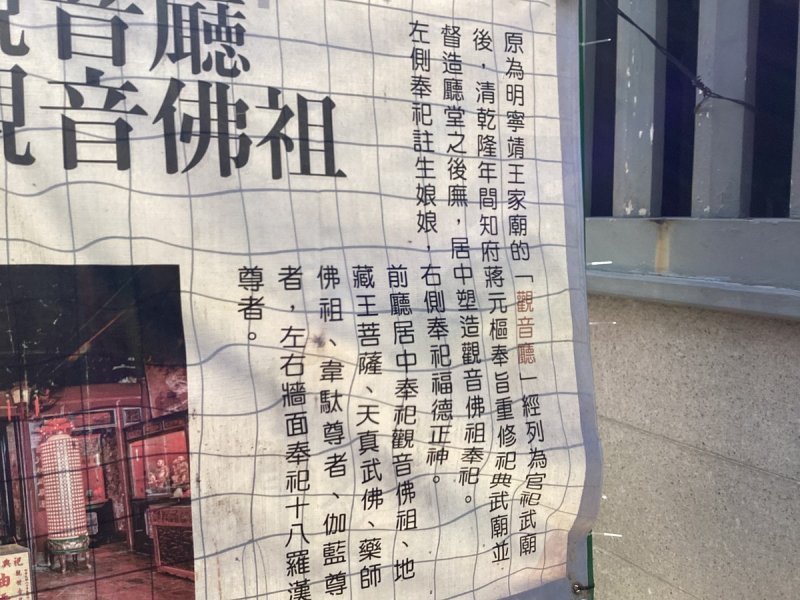 觀音廳
觀音佛祖
原為明寧靖王家廟的「觀音廳」經列為官祀武廟
後，清乾隆年間知府蔣元樞奉旨重修祀典武廟並
督造廳堂之後廡，居中塑造觀音佛祖奉祀。
左側奉祀註生娘娘，右側奉祀福德正神。
前廳居中奉祀觀音佛祖、地
藏王菩薩、天真武佛、藥師
佛祖、韋馱尊者、伽藍尊
者，左右牆面奉祀十八羅漢
尊者。